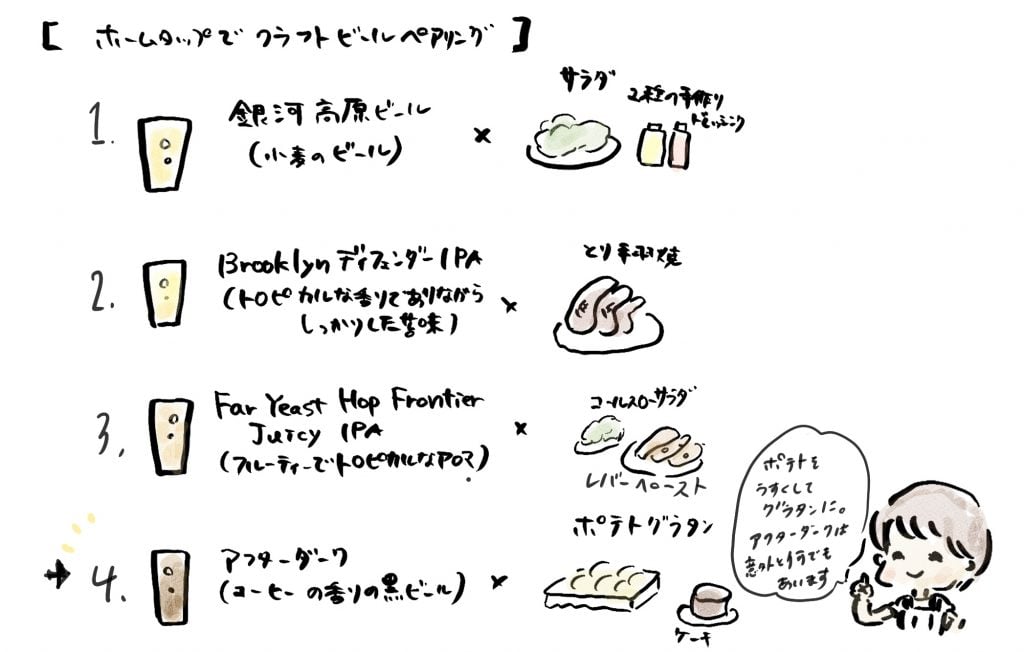 [ ホームタップで クラフトビールペアリング ]
1. 銀河高原ビール
(小麦のビール)
×
サラダ
2種の手作り
ドレッシング
2. Brooklyn ディフェンダーIPA
(トロピカルな香りでありながら
しっかりした苦味)
×
とり手羽焼
3. Far Yeast Hop Frontier
Juicy IPA
(フルーティーでトロピカルなアロマ)
×
コールスローサラダ
レバーペースト
→ 4. アフターダーク
(コーヒーの香りの黒ビール)
×
ポテトグラタン
ケーキ
ポテトを
うすくして
グラタンに。
アフターダークは
意外と何でも
あいます